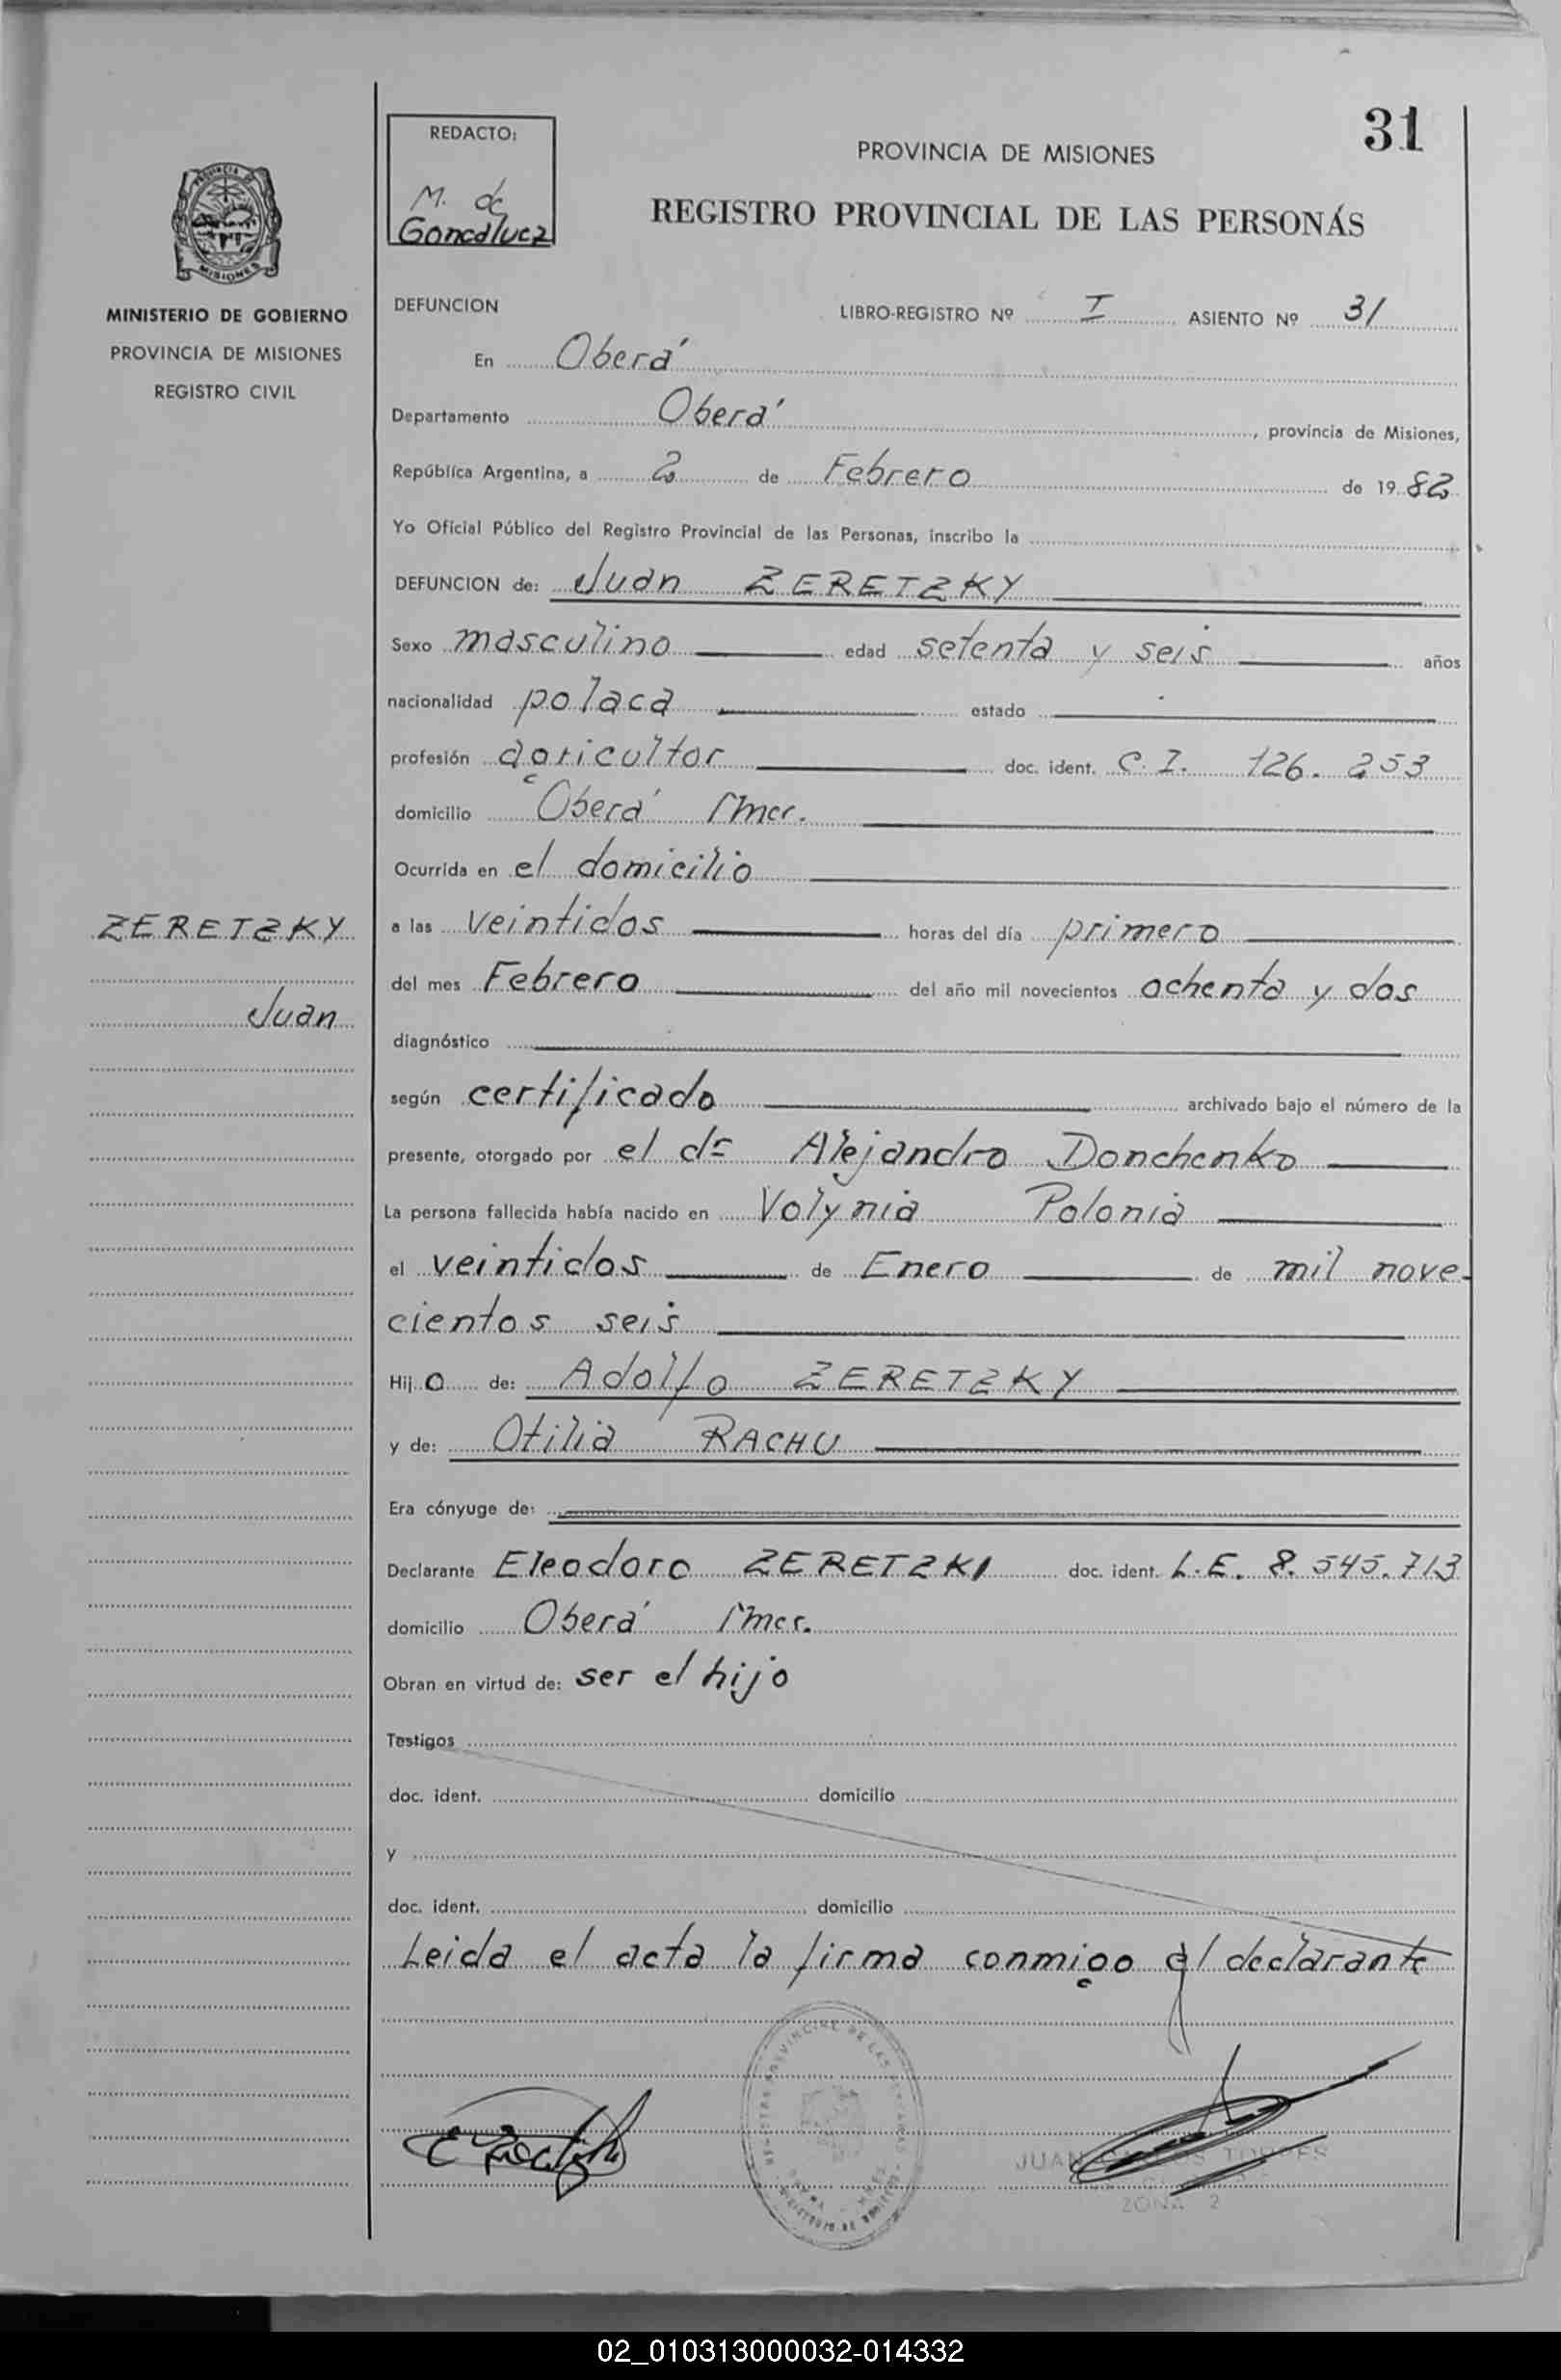 31
REDACTO:
M. de
Goncalvez
PROVINCIA DE MISIONES
REGISTRO PROVINCIAL DE LAS PERSONÁS
MINISTERIO DE GOBIERNO
PROVINCIA DE MISIONES
REGISTRO CIVIL
DEFUNCION LIBRO-REGISTRO Nº I ASIENTO Nº 31
En Oberá
Departamento Oberá, provincia de Misiones,
República Argentina, a 2 de Febrero de 1982
Yo Oficial Público del Registro Provincial de las Personas, inscribo la
DEFUNCION de: Juan ZERETZKY
Sexo masculino edad setenta y seis años
nacionalidad polaca estado
profesión agricultor doc. ident. C.I. 126.253
domicilio Oberá Mnes.
Ocurrida en el domicilio
ZERETZKY
Juan
a las veintidos horas del día primero
del mes Febrero del año mil novecientos ochenta y dos
diagnóstico
según certificado archivado bajo el número de la
presente, otorgado por el dr Alejandro Donchenko
La persona fallecida había nacido en Volynia Polonia
el veintidos de Enero de mil nove-
cientos seis
Hijo de: Adolfo ZERETZKY
y de: Otilia RACHU
Era cónyuge de:
Declarante Eleodoro ZERETZKI doc. ident. L.E. 8.545.713
domicilio Oberá Mnes.
Obran en virtud de: ser el hijo
Testigos
doc. ident. domicilio
y
doc. ident. domicilio
Leida el acta la firma conmigo el declarante
JUAN TORRES
ZONA 2
02_010313000032-014332